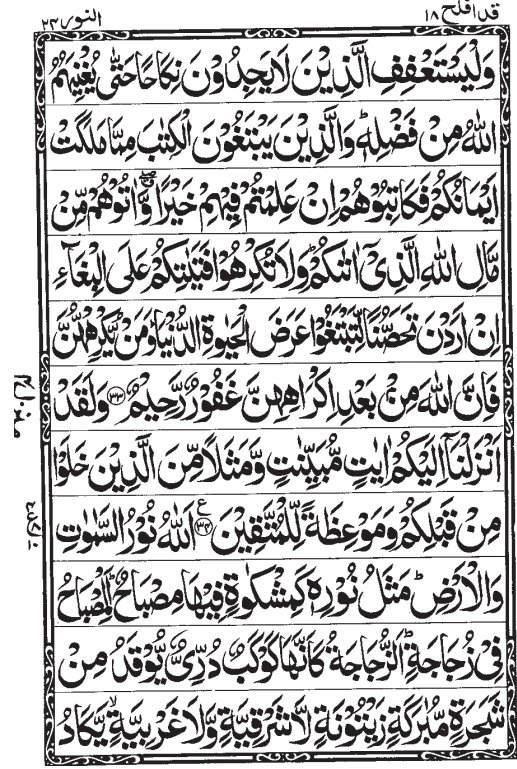 قد افلح ١٨
النور ٢٤
وَلْيَسْتَعْفِفِ الَّذِيْنَ لَا يَجِدُوْنَ نِكَاحًا حَتّٰى يُغْنِيَهُمُ
اللّٰهُ مِنْ فَضْلِهٖ ؕ وَالَّذِيْنَ يَبْتَغُوْنَ الْكِتٰبَ مِمَّا مَلَكَتْ
اَيْمَانُكُمْ فَكَاتِبُوْهُمْ اِنْ عَلِمْتُمْ فِيْهِمْ خَيْرًا ۖۗ وَّاٰتُوْهُمْ مِّنْ
مَّالِ اللّٰهِ الَّذِيْۤ اٰتٰىكُمْ ؕ وَلَا تُكْرِهُوْا فَتَيٰتِكُمْ عَلَى الْبِغَآءِ
اِنْ اَرَدْنَ تَحَصُّنًا لِّتَبْتَغُوْا عَرَضَ الْحَيٰوةِ الدُّنْيَا ؕ وَمَنْ يُّكْرِهْهُّنَّ
فَاِنَّ اللّٰهَ مِنْۢ بَعْدِ اِكْرَاهِهِنَّ غَفُوْرٌ رَّحِيْمٌ ﴿٣٣﴾ وَلَقَدْ
اَنْزَلْنَاۤ اِلَيْكُمْ اٰيٰتٍ مُّبَيِّنٰتٍ وَّمَثَلًا مِّنَ الَّذِيْنَ خَلَوْا
مِنْ قَبْلِكُمْ وَمَوْعِظَةً لِّلْمُتَّقِيْنَ ﴿٣٤﴾ ع اَللّٰهُ نُوْرُ السَّمٰوٰتِ
وَالْاَرْضِ ؕ مَثَلُ نُوْرِهٖ كَمِشْكٰوةٍ فِيْهَا مِصْبَاحٌ ؕ اَلْمِصْبَاحُ
فِيْ زُجَاجَةٍ ؕ اَلزُّجَاجَةُ كَاَنَّهَا كَوْكَبٌ دُرِّيٌّ يُّوْقَدُ مِنْ
شَجَرَةٍ مُّبٰرَكَةٍ زَيْتُوْنَةٍ لَّا شَرْقِيَّةٍ وَّلَا غَرْبِيَّةٍ ۙ يَّكَادُ
منزل ٤